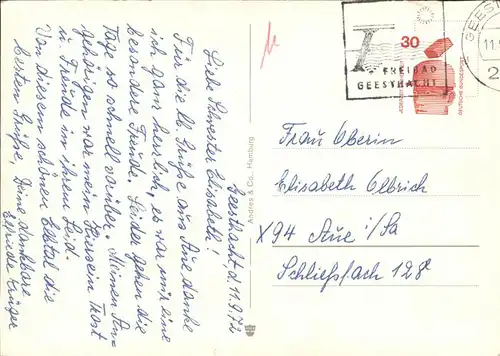 Geesthacht d. 11.9.72
Liebe Schwester Elisabeth!
Für die lb. Grüße aus Aue danke
ich ganz herzlich, es war mir eine
besondere Freude. Leider gehen die
Tage so schnell vorüber. Meinen An-
gehörigen war mein Hiersein Trost
u. Freude in ihrem Leid.
Von diesem schönen Elbtal die
besten Grüße, Deine dankbare
Elfriede Krüger
Andres & Co., Hamburg
30
DEUTSCHE BUNDESPOST
FREIBAD
GEESTHACHT
GEEST
11.
2
Frau Oberin
Elisabeth Olbrich
X94 Aue i/Sa
Schließfach 128